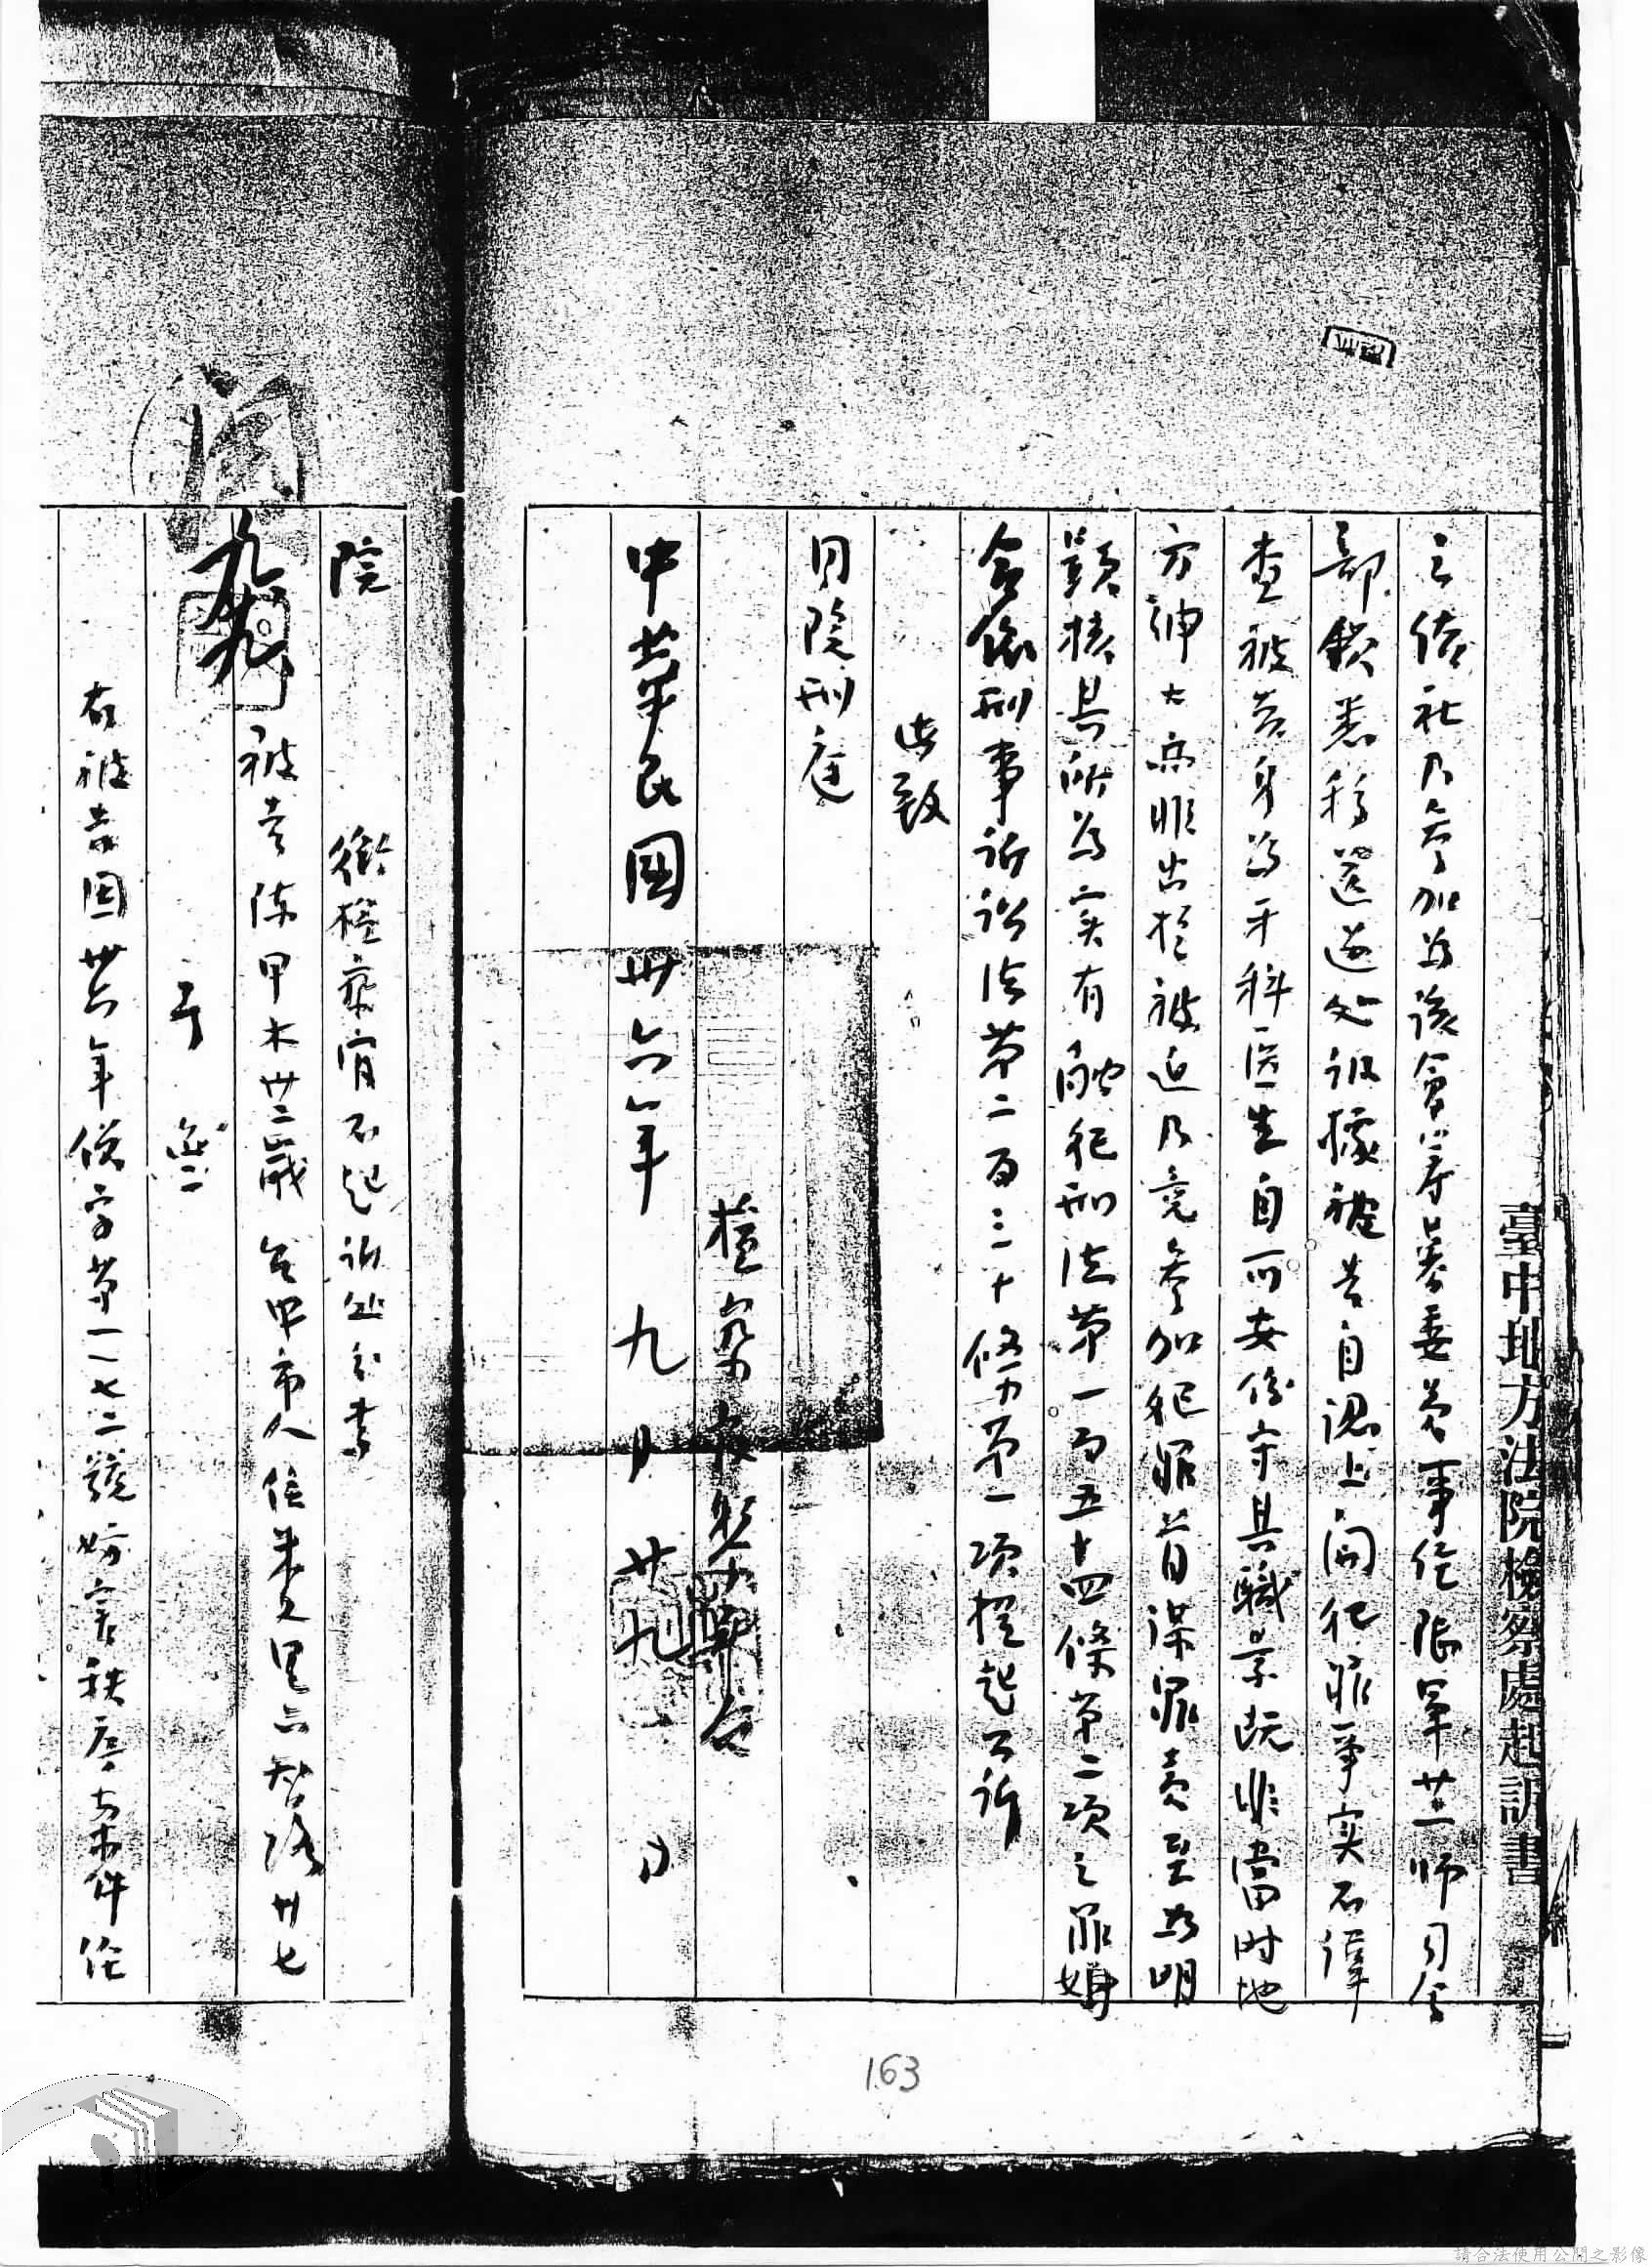 臺中地方法院檢察處起訴書
之結社乃參加為該會籌募委員事經
師司令
部鎮悉移送過处訊據被告自認上開犯罪事实不諱
查被告身為牙科医生自可安份守其職業既非當時地
方紳士亦非出於被迫乃竟參加犯罪首謀罪責至為明
顯核其所為实有触犯刑法第一百五十四條第二項之罪嫌
合依刑事訴訟法第二百三十條第一項提起公訴
此致
同院刑庭
檢察官
中華民國卅六年九月廿九日
院 檢察官不起訴処分書
被告陳甲木卅二歲台中市人住
里六
路卅七
号
右被告因卅六年偵字第一一七二號妨害秩序案件經
163
請合法使用公開之影像